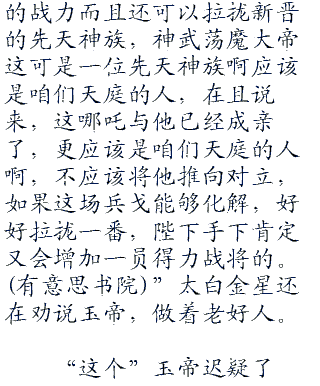 的战力而且还可以拉拢新晋
的先天神族，神武荡魔大帝
这可是一位先天神族啊应该
是咱们天庭的人，在且说
来，这哪吒与他已经成亲
了，更应该是咱们天庭的人
啊，不应该将他推向对立，
如果这场兵戈能够化解，好
好拉拢一番，陛下手下肯定
又会增加一员得力战将的。
(有意思书院)”太白金星还
在劝说玉帝，做着老好人。
“这个”玉帝迟疑了